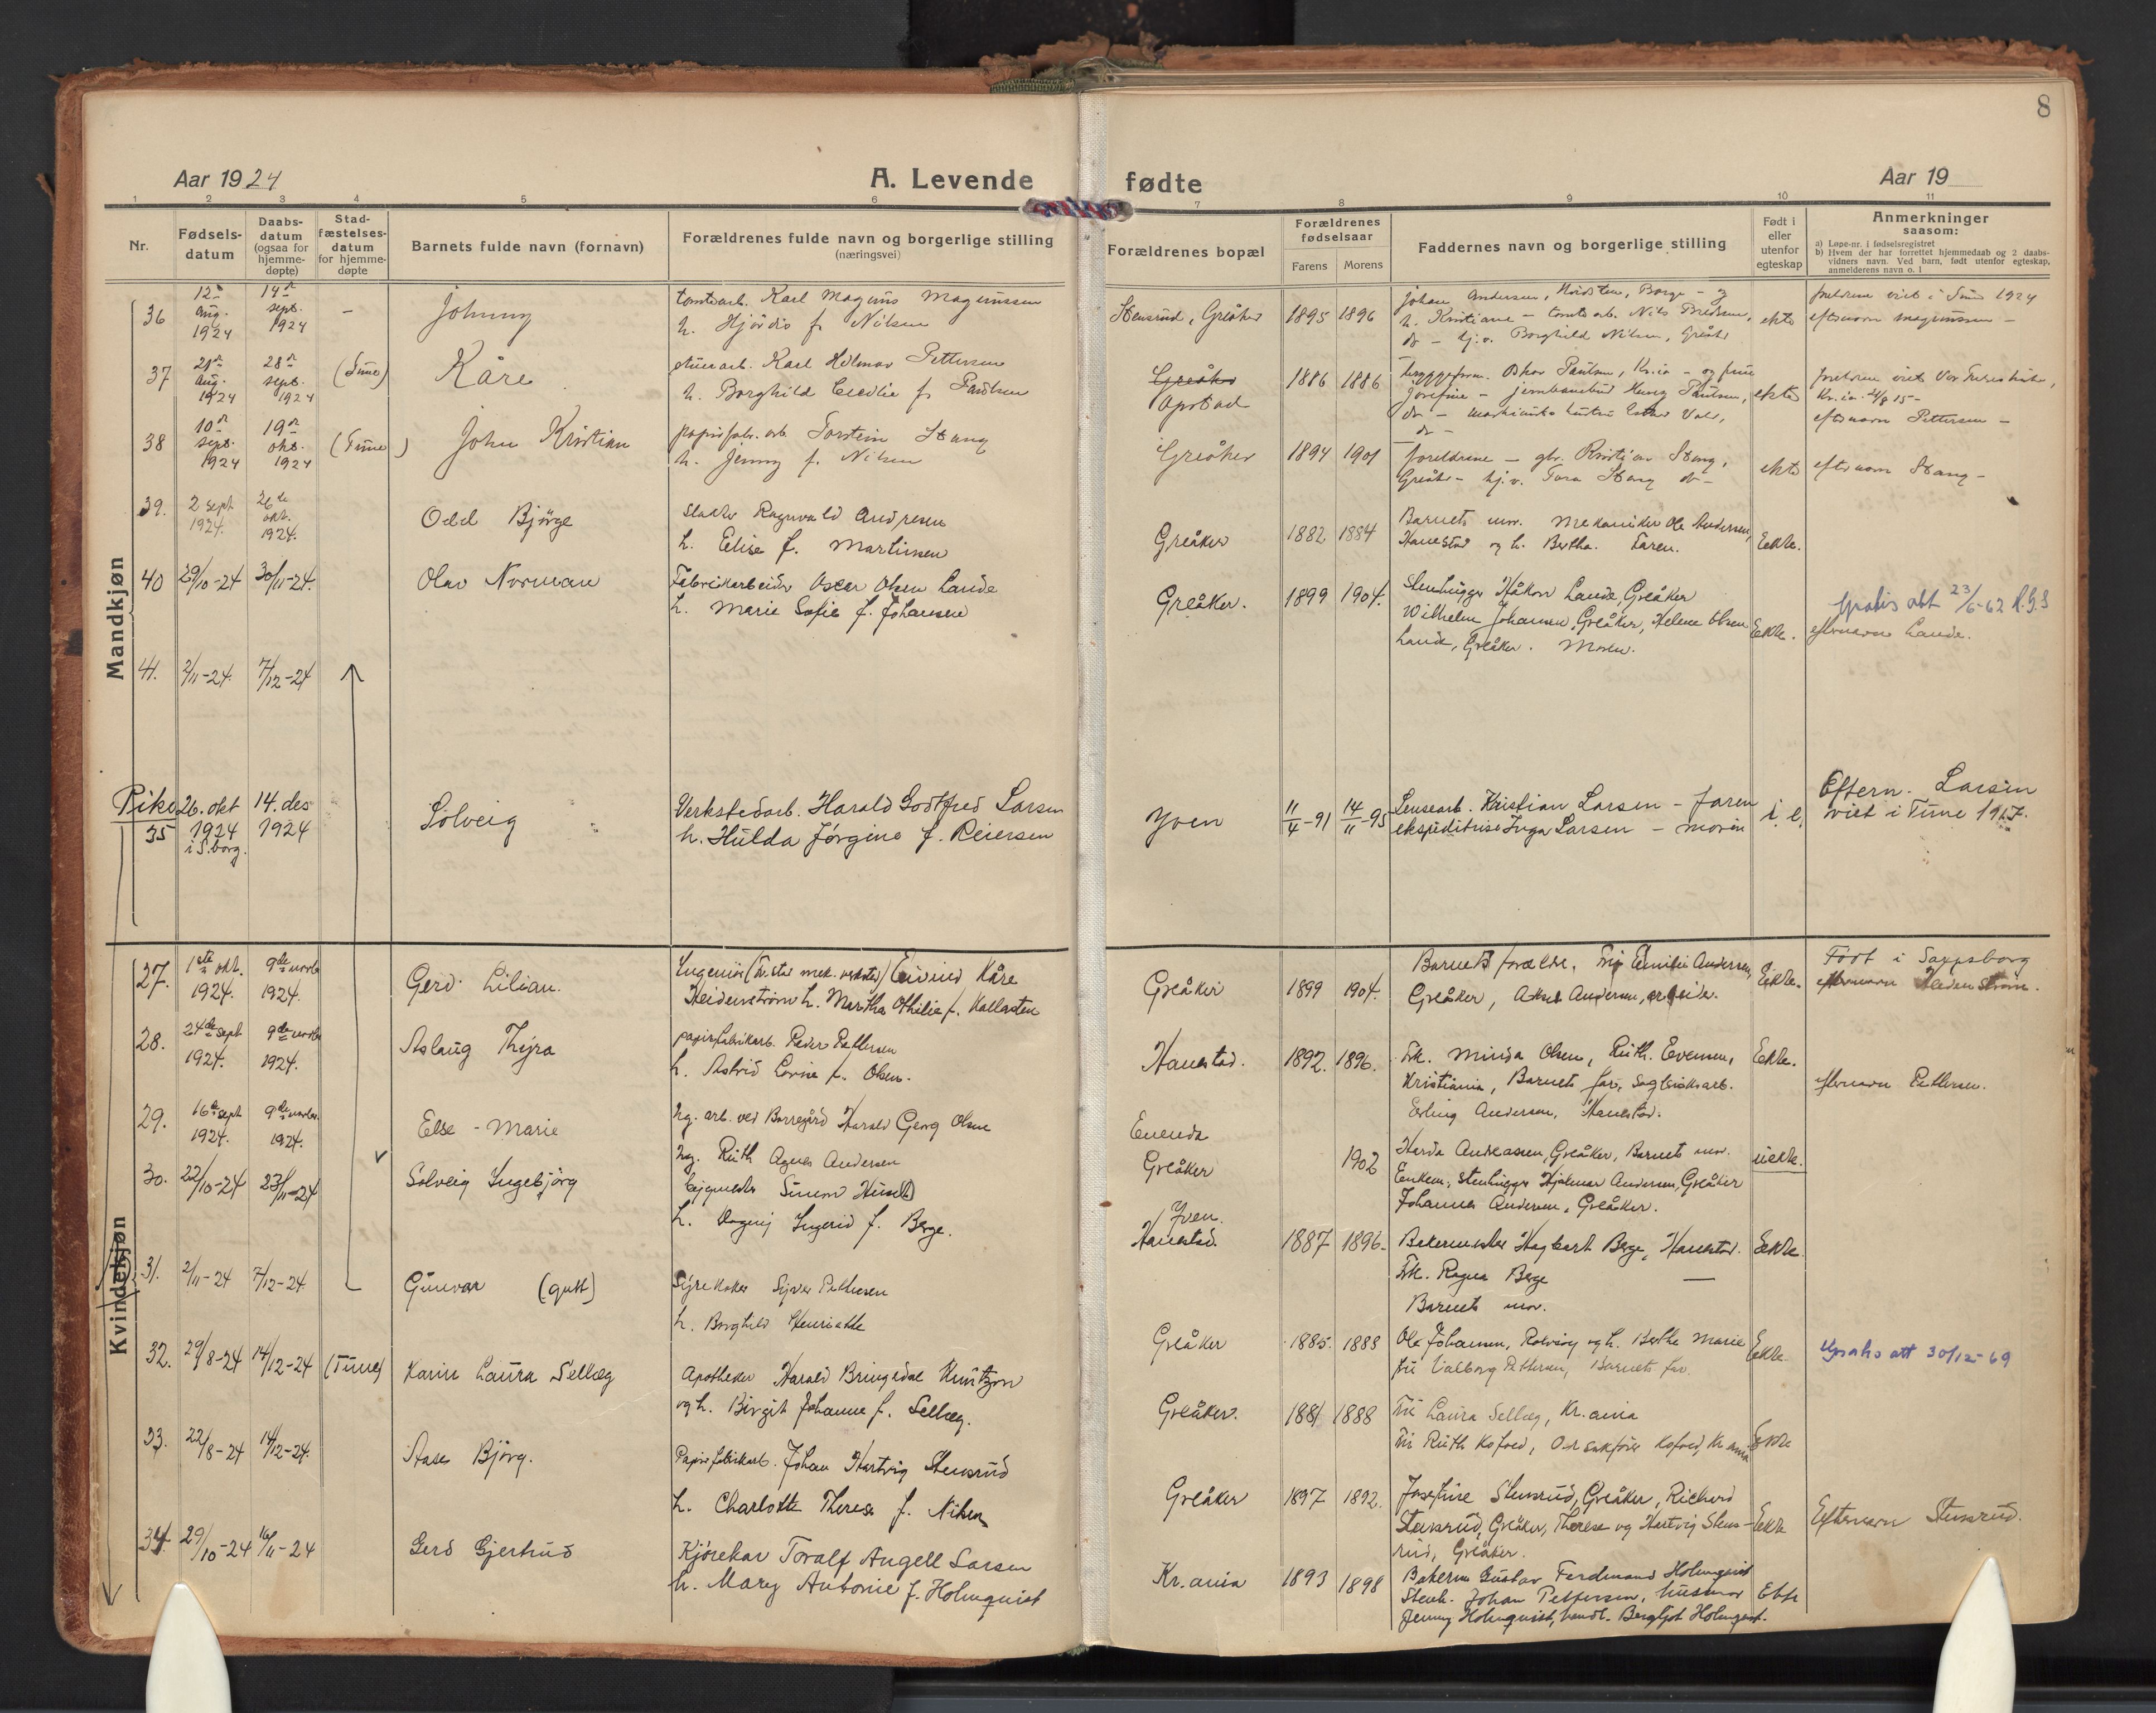 8
Aar 1924
A. Levende fødte
Aar 19
1 2 3 4 5 6 7 8 9 10 11
Nr.
Fødsels-
datum
Daabs-
datum
(ogsaa for
hjemme-
døpte)
Stad-
fæstelses-
datum
for hjemme-
døpte
Barnets fulde navn (fornavn)
Forældrenes fulde navn og borgerlige stilling
(næringsvei)
Forældrenes bopæl
Forældrenes
fødselsaar
Farens Morens
Faddernes navn og borgerlige stilling
Født i
eller
utenfor
egteskap
Anmerkninger
saasom:
a) Løpe-nr. i fødselsregistret
b) Hvem der har forrettet hjemmedaab og 2 daabs-
vidners navn. Ved barn, født utenfor egteskap,
anmelderens navn o. l
Mandkjøn
36
12te
aug.
1924
14de
sept.
1924
-
Johnny
tomtearb. Karl Magnus Magnussen
h. Hjørdis f. Nilsen
Stensrud, Greåker
1895 1896
Johan Andersen, Borge - og
h. Kristiane - tomtearb. Nils
d - hj.v. Borghild Nilsen, Greåker
ekte
foreldrene viet i Tune 1924
efternavn Magnussen -
37
aug.
1924
28de
sept.
1924
(Tune)
Kåre
Karl Hilmar Pettersen
h. Borghild Cecilie f. Paulsen
Greåker
Opstad
1886 1886
Oskar Paulsen, Kr.ia - og frue
Josefine - jernbanebud Henry Paulsen,
ekte
Kr.ia 15-
efternavn Pettersen -
38
10de
sept.
1924
19de
okt.
1924
(Tune)
John Kristian
papirfabr. arb. Torstein Stang
h. Jenny f. Nilsen
Greåker
1894 1901
foreldrene - gbr. Kristian Stang,
Greåker - hj.v. Tora Stang d -
ekte
efternavn Stang -
39.
2 sept
1924.
26de
okt.
1924.
Odd Bjørge
Ragnvald Andresen
h. Elise f. Martinsen
Greåker
1882 1884
Barnets mor. Mekaniker Ole Andersen,
Hanestad og h. Bertha. Faren.
Eekte.
40
29/10-24
30/11-24.
Olav Norman
Fabrikarbeider Oscar Olsen Lande
h. Marie Sofie f. Johansen
Greåker.
1899 1904.
Stenhugger Håkon Lande, Greåker
Wilhelm Johansen, Greåker, Helene Olsen
Lande, Greåker. Moren.
Eekte.
Gratis att 23/6-62
efternavn Lande.
41.
2/11-24.
7/12-24
Pike
35
26. okt
1924
i S.borg.
14. des
1924
Solveig
Verkstedarb. Harald Godtfred Larsen
h. Hulda Jørgine f. Reiersen
Yven
11/4-91 14/11-95
Lensearb. Kristian Larsen - faren
ekspeditrise Inga Larsen - moren
i. e.
Eftern. Larsen
viet i Tune 1917.
Kvindekjøn
27.
1ste okt.
1924.
9de novbr
1924.
Gerd Lilian.
Ingeniør mek. verksted) Eivind Kåre
Heidenstrøm h. Martha Othilie f. Kallasten
Greåker
1899 1904.
Barnets forældre. Emilie Andersen,
Greåker, Aksel Andersen, arbeider.
Eekte.
Født i Sarpsborg
efternavn Heidenstrøm.
28.
24de sept
1924.
9de novbr
1924.
Aslaug Thyra
papirfabrikarb. Peder Pettersen
h. Astrid Lovise f. Olsen.
Hanestad.
1892. 1896.
Frk. Minda Olsen, Ruth Evensen,
Kristiania, Barnets far, Sagbruksarb.
Erling Andersen, Hanestad.
Eekte.
efternavn Pettersen.
29.
16de sept
1924.
9de novbr.
1924.
Else - Marie
Ug. arb. ved Borregård Harald Georg Olsen
Ug. Ruth Agnes Andersen
Greåker
1902
Herda Andreassen, Greåker, Barnets mor.
Enkem. Stenhugger Hjalmar Andersen, Greåker
Johannes Andersen, Greåker.
uekte.
30.
22/10-24
23/11-24
Solveig Ingebjørg
Simon
h. Dagny Ingerid f. Berge.
Yven.
Hanestad.
1887 1896.
Bakermester Hagbart Berge, Hanestad.
Frk. Ragna Berge
Barnets mor.
Eekte.
31.
2/11-24
7/12-24.
Gunvar (gutt)
Syrekoker Syver Pettersen
h. Borghild Henriette
Greåker
1885. 1888
Ole Johansen, Rolvsøy og h. Berthe Marie
Fru Valborg Pettersen, Barnets far.
Eekte.
Gratis att 30/12-69
32.
29/8-24
14/12-24
(Tune)
Karin Laura Selleg
Apotheker Harald Bringedal Knutzon
og h. Birgit Johanne f. Selleg.
Greåker.
1881 1888
Fru Laura Selleg, Kr.ania
Fru Ruth Kofoed, O.r.sakfører Kofoed, Kr.ania
Eekte
33.
22/8-24
14/12-24.
Aase Bjørg.
Papirfabrikarb. Johan Hartvig Stensrud
h. Charlotte Therese f. Nilsen
Greåker
1897 1892.
Josefine Stensrud, Greåker, Richard
Stensrud, Greåker, Therese og Hartvig Stens-
rud, Greåker.
Eekte
Efternavn Stensrud.
34.
29/10-24
16/11-24
Gerd Gjertrud
Kjørekar Toralf Angell Larsen
h. Mary Antonie f. Holmquist
Kr.ania
1893 1898
Bakerm Gustav Ferdinand Holmquist
Stenh. Johan Pettersen, husmor
Jenny Holmquist, handl. Bergljot Holmquist.
Ekte